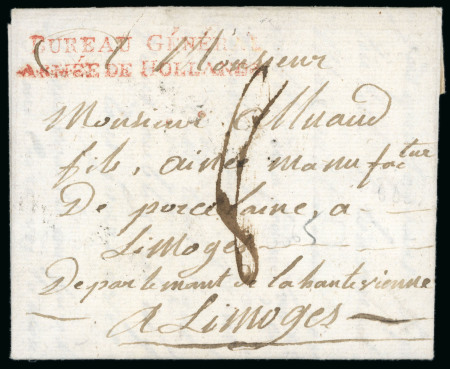 BUREAU GÉNÉRAL
ARMÉE DE HOLLANDE
A Monsieur
Monsieur Alluaud
fils, ainée manufactur
De porcelaine a
Limoges
Departemant de la hautevienne
a Limoges
8